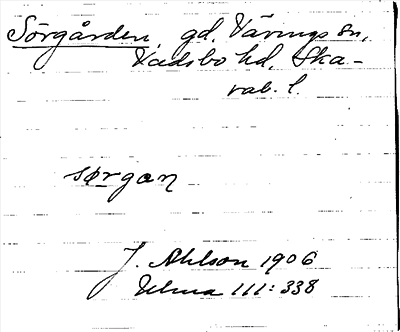 Sörgården, gd, Värings sn,
Vadsbo hd, Ska-
rab. l.
sørgan
J. Ahlson 1906
Uhma 111:338